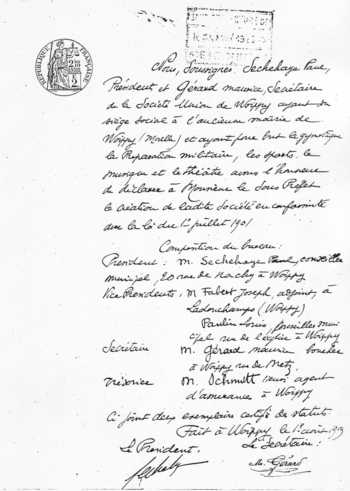 RÉPUBLIQUE FRANÇAISE
Nous, Soussignés, Sechehaye Paul,
Président et Gérard maurice, Secrétaire
de la Société Union de Woippy ayant son
siège social à l'ancienne mairie de
Woippy (Moselle) et ayant pour but la gymnastique
la Préparation militaire, les sports, la
musique et le théâtre avons l'honneur
de déclarer à Monsieur le Sous Préfet
la création de ladite Société en conformité
avec la loi du 1er juillet 1901
Composition du bureau :
Président : M. Sechehaye Paul, conseiller
municipal, rue de à Woippy
Vice Présidents : M. Fabert Joseph, adjoint, à
Ladonchamps (Woippy)
Paulin Louis, Conseiller muni
cipal rue de l'église à Woippy
Secrétaire M. Gérard maurice boucher
à Woippy rue de Metz.
Trésorier M. Schmitt agent
d'assurances à Woippy
Ci joint deux exemplaires certifiés des statuts
Fait à Woippy le 1er
Le Président. Le Secrétaire :
M. Gérard